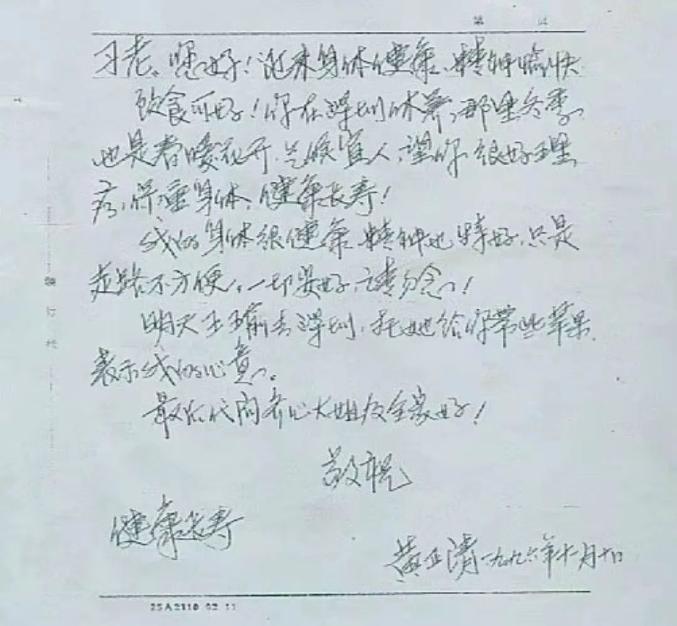 第 页
习老，您好！近来身体健康、精神愉快
饮食可好！你在深圳休养，那里冬季
也是春暖花开，气候宜人，望你很好理
疗，保重身体，健康长寿！
我的身体很健康，精神也特好，只是
走路不方便，一切安好，请勿念！
明天玉玉前去深圳，托她给你带些苹果，
表示我的心意。
最后代问齐心大姐及全家好！
敬祝
健康长寿
黄正清一九九六年十月十日
装 订 线
25A2110 02 11